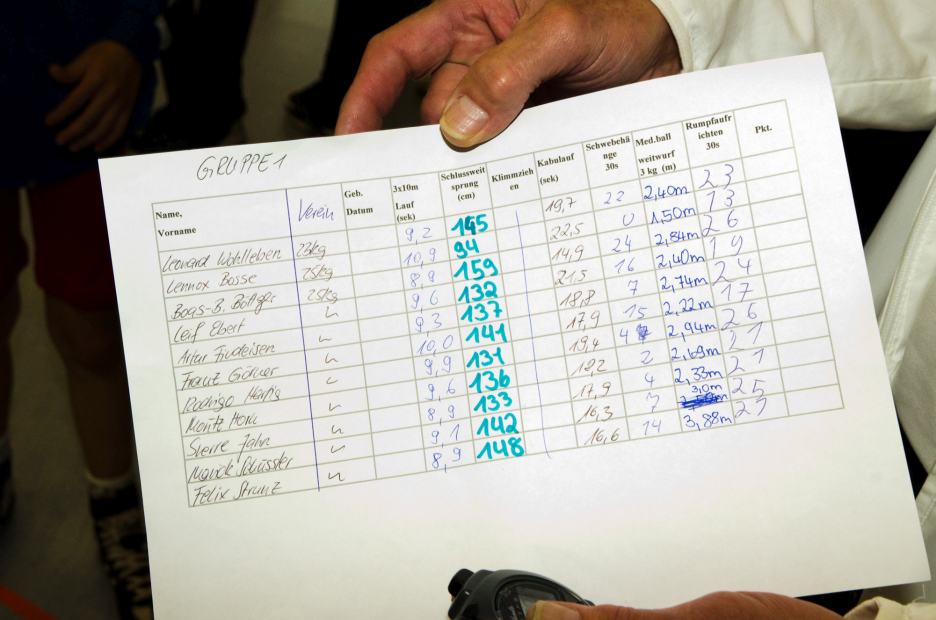 GRUPPE 1
Name, Vorname Verein Geb. Datum 3x10m Lauf (sek) Schlussweit sprung (cm) Klimmzieh en Kabulauf (sek) Schwebehä nge 30s Med.ball weitwurf 3 kg (m) Rumpfaufr ichten 30s Pkt.
Leonard Wohlleben 23kg 9,2 145 19,7 22 2,40m 23
Lennox Bosse 25kg 10,9 94 22,5 0 1,50m 13
Boas-B. Böttger 25kg 8,9 159 14,9 24 2,84m 26
Leif Ebert 9,6 132 21,5 16 2,40m 19
Artur Findeisen 9,3 137 18,8 7 2,74m 24
Franz Görner 10,0 141 17,9 15 2,22m 17
Rodrigo 9,9 131 19,4 4 2,94m 26
Moritz Horn 9,6 136 2 2,69m 21
Jahn 8,9 133 17,9 4 2,33m 21
Schüssler 9,1 142 16,3 7 3,0m 25
Felix Strunz 8,9 148 16,6 14 3,88m 23